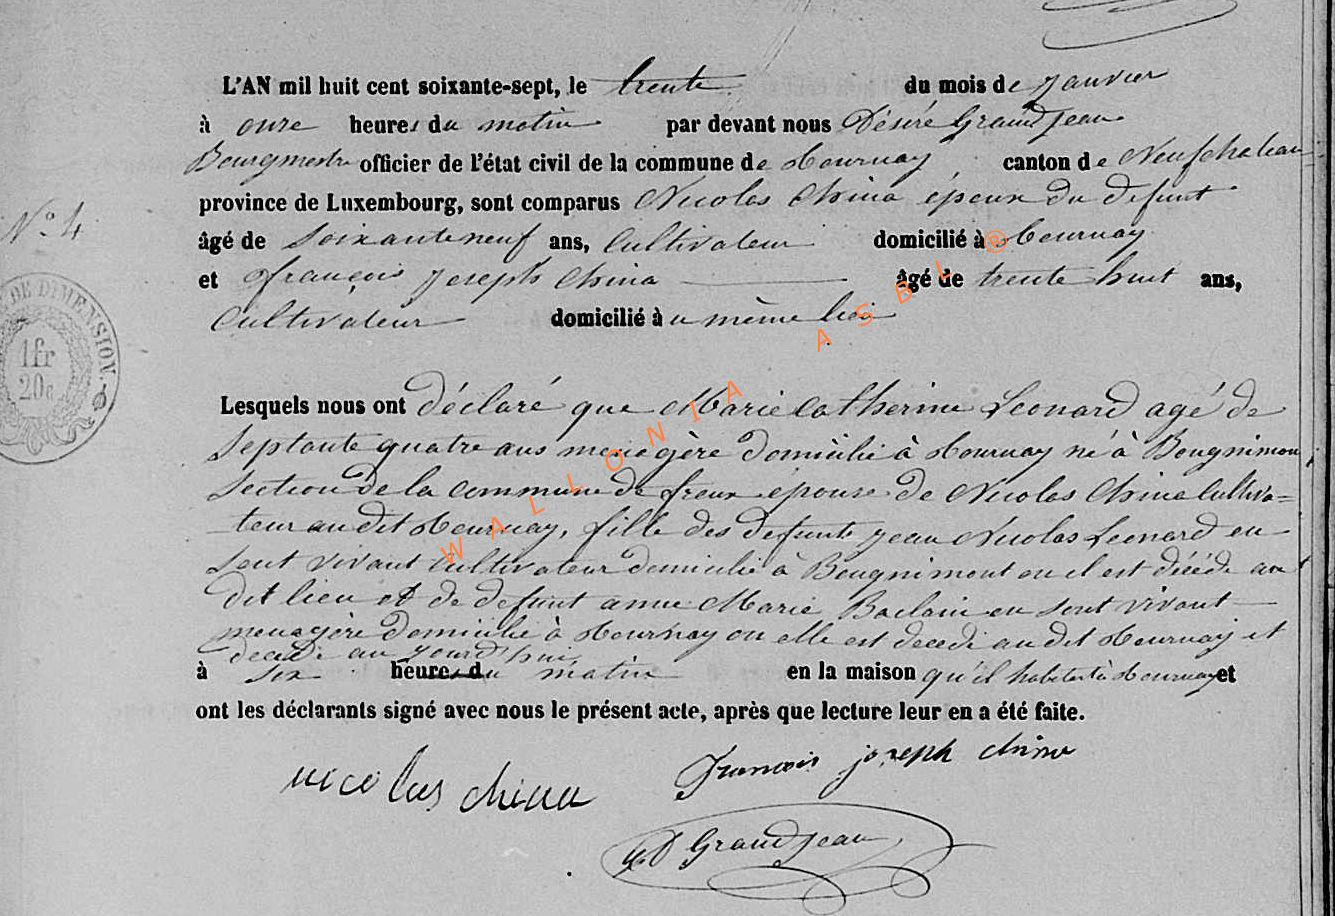 L'AN mil huit cent soixante-sept, le trente du mois de janvier
à onze heures du matin par devant nous Désiré Grandjean
Bourgmestre officier de l'état civil de la commune de Tournay canton de Neufchateau
province de Luxembourg, sont comparus Nicolas China époux du defunt
N° 4
âgé de soixante neuf ans, Cultivateur domicilié à Tournay
et françois Joseph China âgé de trente huit ans,
Cultivateur domicilié àu même lieu
DE DIMENSION.
1fr
20c
WALLONIA ASBL ®
Lesquels nous ont déclaré que Marie Catherine Leonard agé de
Septante quatre ans menagère domicilié à Tournay né à Bougnimon
Section de la commune de freux épouse de Nicolas China Cultiva=
teur au dit Tournay, fille des defunts jean Nicolas Leonard en
sont vivant Cultivateur domicilié à Bougnimont ou il est décédé au
dit lieu et de defunt anne Marie en sont vivant
menagère domicilié à Tournay ou elle est decedé au dit Tournay et
decedé au jourd'hui
à six heures du matin en la maison qu'il habitat à Tournay et
ont les déclarants signé avec nous le présent acte, après que lecture leur en a été faite.
nicolas china
francois joseph chino
D Grandjean